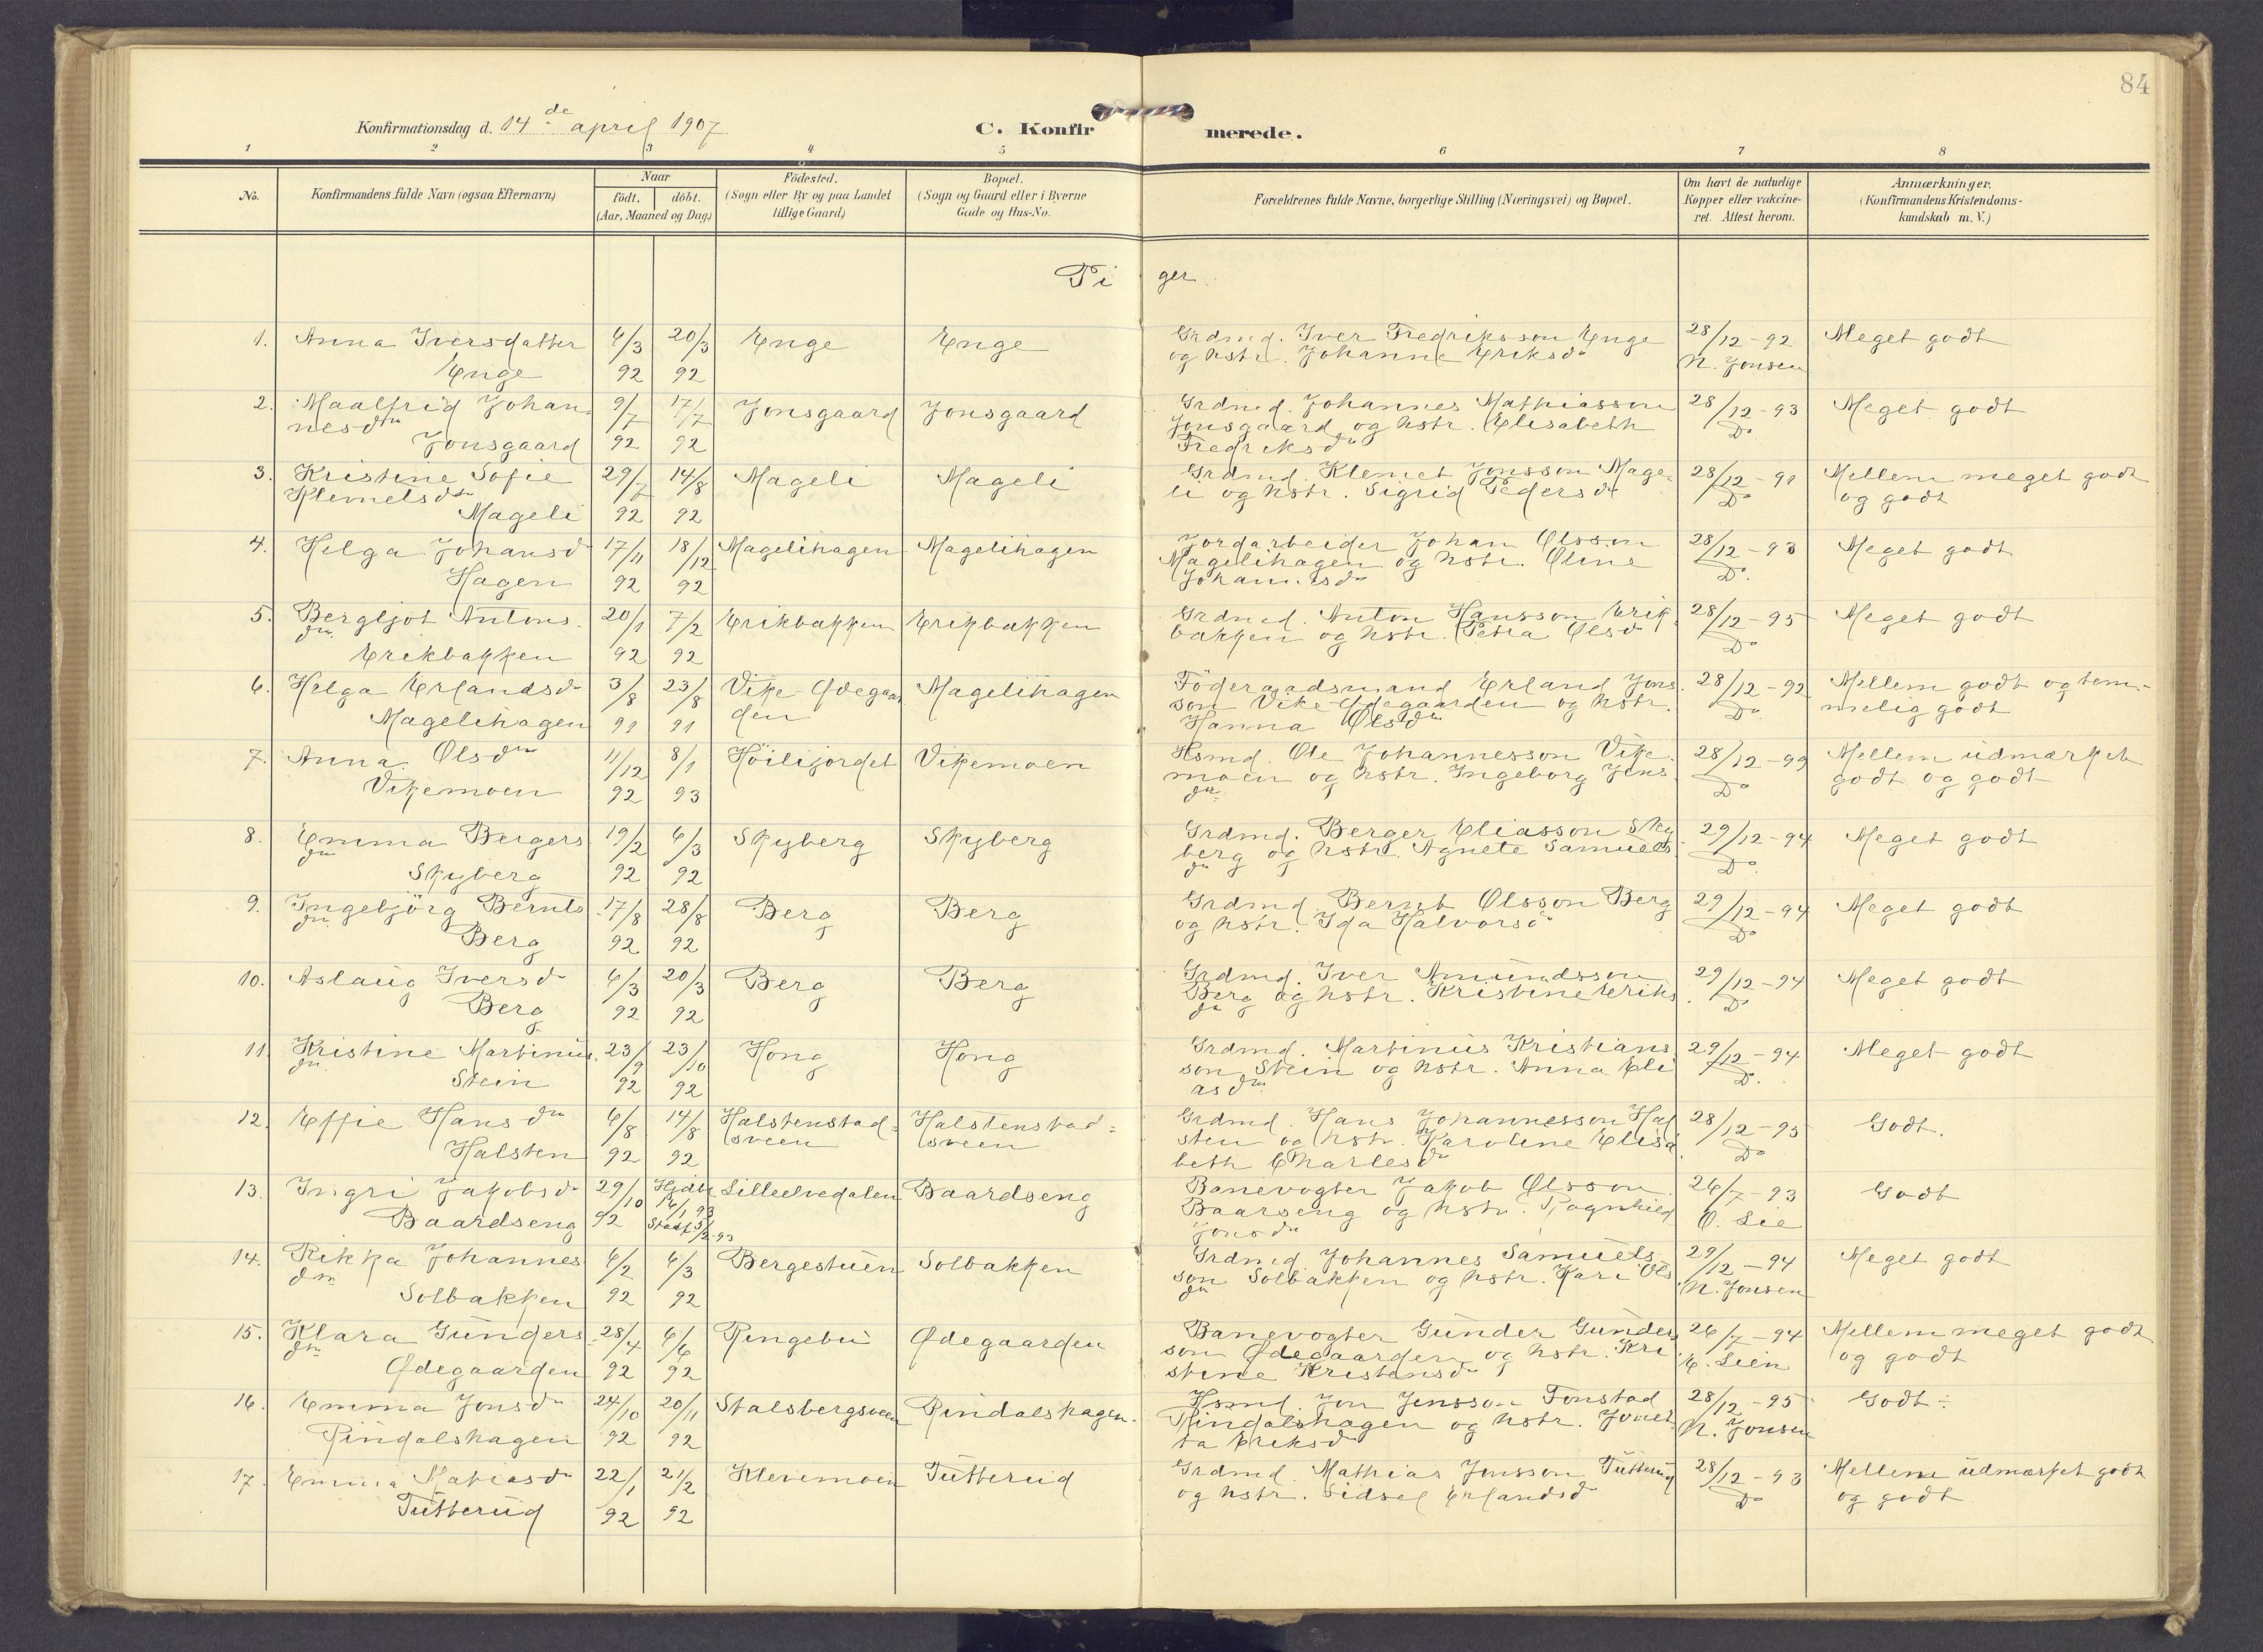 84
Konfirmationsdag d. 14de april 1907
C. Konfirmerede.
1 2 3 4 5 6 7 8
No.
Konfirmandens fulde Navn (ogsaa Efternavn)
Naar
födt. döbt.
(Aar, Maaned og Dag)
Födested.
(Sogn eller By og paa Landet
tillige Gaard)
Bopæl.
(Sogn og Gaard eller i Byerne
Gade og Hus-No.
Forældrenes fulde Navne, borgerlige Stilling (Næringsvei) og Bopæl.
Om havt de naturlige
Kopper eller vakcine-
ret. Attest herom.
Anmærkninger.
(Konfirmandens Kristendoms-
kundskab m. V.)
Piger
1. Anna Iversdatter 6/3 20/3 Enge Enge Grdmd. Iver Fredriksson Enge 28/12-92 Meget godt
Enge 92 92 og hstr. Johanne Eriksdr N. Jonsen
2. Maalfrid Johan 9/7 17/7 Jonsgaard Jonsgaard Grdmd. Johannes Mathiasson 28/12-93 Meget godt
nesdtr Jonsgaard 92 92 Jonsgaard og hstr. Elisabeth Do
Fredriksdr
3. Kristine Sofie 29/7 14/8 Mageli Mageli Grdmd. Klemet Jonsson Mage- 28/12-91 Mellem meget godt
Klemetsdtr li og hstr. Sigrid Pedersdr Do og godt
Mageli 92 92
4. Helga Johansd 17/11 18/12 Magelihagen Magelihagen Jordarbeider Johan Olsson 28/12-93 Meget godt
Hagen 92 92 Magelihagen og hstr. Oline Do.
Johannesdr
5. Bergljot Antons- 20/1 7/2 Erikbakken Erikbakken Grdmd. Anton Hansson Erik- 28/12-95 Meget godt
dtr. bakken og hstr. Petra Olsd Do
Erikbakken 92 92
6. Helga Erlandsdr 3/8 23/8 Vike-Ødegaar Magelihagen Föderaadsmand Erland Jons- 28/12-92 Mellem godt og tem-
Magelihagen 91 91 den son Vike-Ødegaarden og hstr. Do melig godt
Hanna Olsdtr
7. Anna Olsdtr 11/12 8/1 Höilijordet Vikemoen Hsmd. Ole Johannesson Vike- 28/12-99 Mellem udmærket
Vikemoen 92 93 moen og hstr. Ingeborg Jens Do godt og godt
dtr.
8. Emma Bergers 19/2 6/3 Skyberg Skyberg Grdmd. Berger Eliasson Sky 29/12-94 Meget godt
dtr berg og hstr. Agnete Samuels- Do
Skyberg 92 92 dtr
9. Ingebjörg Bernts 17/8 28/8 Berg Berg Grdmd. Bernt Olsson Berg 29/12-94 Meget godt
dtr. Berg 92 92 og hstr. Ida Halvorsdr Do
10. Aslaug Iversdr 6/3 20/3 Berg Berg Grdmd. Iver Amundsson 29/12-94 Meget godt
Berg 92 92 Berg og hstr. Kristine Eriks Do
dtr
11. Kristine Martinus 23/9 23/10 Hong Hong Grdmd. Martinus Kristians 29/12-94 Meget godt
dtr. Stein 92 92 son Stein og hstr. Anna Eli Do.
asdtr
12. Effie Hansdtr 6/8 14/8 Halstenstad= Halstenstad= Grdmd. Hans Johannesson Hal 28/12-95 Godt.
Halsten 92 92 sveen sveen sten og hstr. Karoline Elisa Do
beth Charlesdtr
13. Ingri Jakobsdr 29/10 Hjdbt 16/1 93 Lilleelvedalen Baardseng Banevogter Jakob Olsson 26/7-93 Godt
Baardseng 92 Stadf 5/2-93 Baarseng og hstr. Ragnhild O. Lie
Jonsdtr
14. Rikka Johannes 6/2 6/3 Bergestuen Solbakken Grdmd. Johannes Samuels- 29/12-94 Meget godt
dtr son Solbakken og hstr. Kari Ols N. Jonsen
Solbakken 92 92 dtr
15. Klara Gunders- 28/4 6/6 Ringebu Ødegaarden Banevogter Gunder Gunder 26/7-94 Mellem meget godt
dtr. son Ødegaarden og hstr. Kri E. Lien og godt
Ødegaarden 92 92 stine Kristensdr
16. Emma Jonsdr 24/10 20/11 Stalsbergsveen Rindalshagen. Hsmd. Jon Jensson Fonstad 28/12-95 Godt÷
Rindalshagen 92 92 Rindalshagen og hstr. Jonet N. Jonsen
ta Eriksd
17. Emma Matiasdr 22/1 21/2 Klevemoen Tutterud Grdmd. Mathias Jonsson Tutterud 28/12-93 Mellem udmærket godt
Tutterud 92 92 og hstr. Sidsel Erlandsd Do og godt